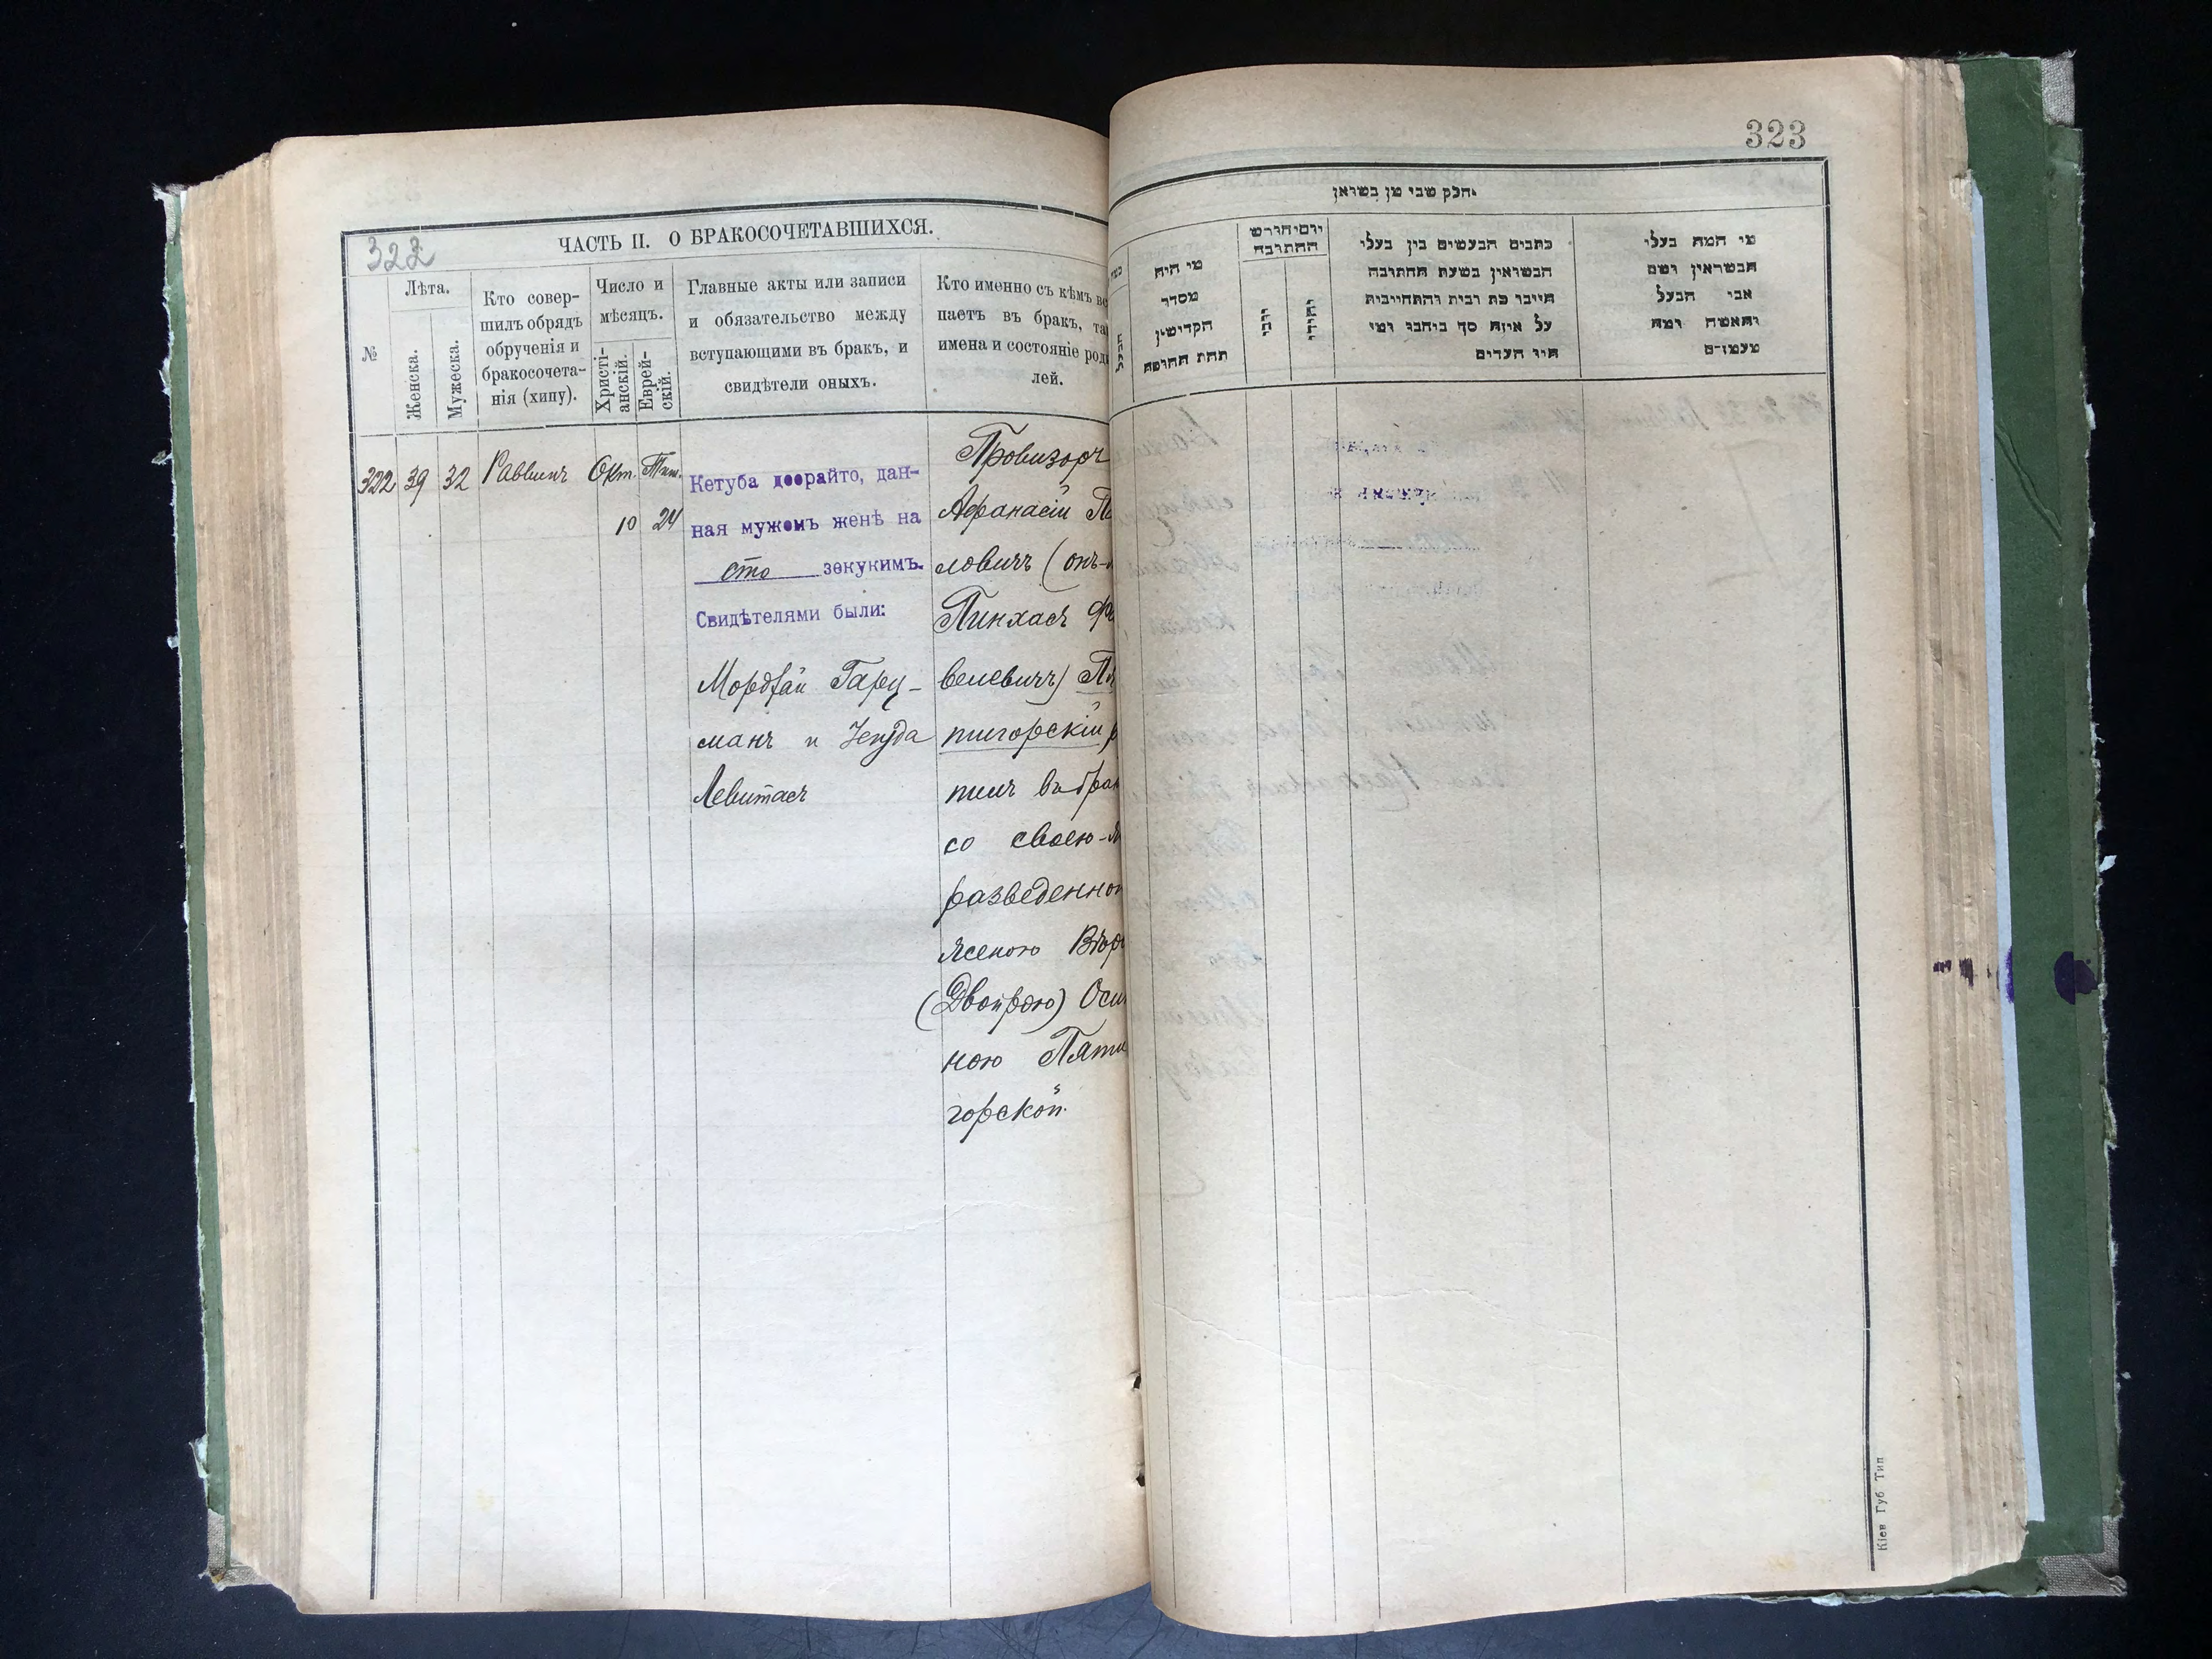 322
ЧАСТЬ II. О БРАКОСОЧЕТАВШИХСЯ.
№
Лѣта.
Женска.
Мужеска.
Кто совер-
шилъ обрядъ
обрученія и
бракосочета-
нія (хипу).
Число и
мѣсяцъ.
Христі-
анскій.
Еврей-
скій.
Главные акты или записи
и обязательство между
вступающими въ бракъ, и
свидѣтели оныхъ.
Кто именно съ кѣмъ вс
паетъ въ бракъ, та
имена и состояніе род
лей.
322 39 32 Раввинъ Окт. Тиш.
10 24
Кетуба деорайто, дан-
ная мужемъ женѣ на
сто зекукимъ.
Свидѣтелями были:
Мордхай Гарц-
манъ и Іегуда
Левитасъ
Провизоръ
Афанасій Па
ловичъ (онъ-
Пинхасъ Фа
велевичъ) Пя
тигорскій
пилъ въ брак
со своею
разведенно
женою Вѣр
(Двойрою) Оси
ною Пяти
горской.
323
חלק שני מן נשואין.
מי היה
מסדר
הקדישין
תחת החופה
יום וחודש
החתונה
כתבים הנעשים בין בעלי
הנשואין בשעת החתונה
היינו כת ובית והתחייבות
על איזה סך ביחבו ומי
היו העדים
מי המה בעלי
הנשואין ושם
אבי הבעל
והאשה ומה
מעמדם
Кіев Губ Тип